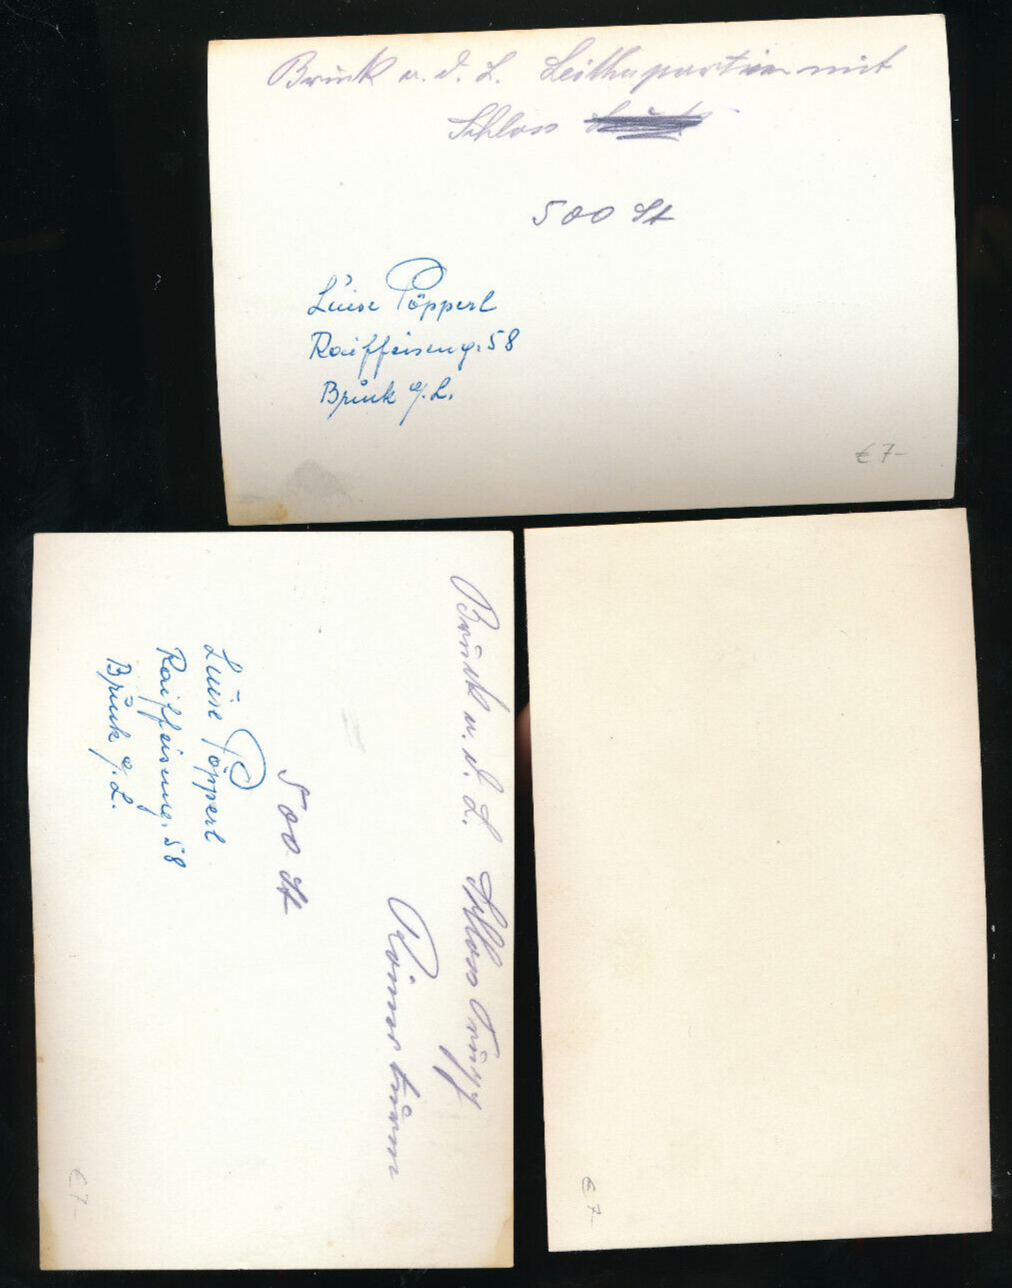 Bruck a. d. L. Leithapartie mit
Schloss
500 St
Luise Pöpperl
Raiffeiseng. 58
Bruck a/L.
€ 7-
Bruck a. d. L. Schloss Prugg
Römerturm
500 St
Luise Pöpperl
Raiffeiseng. 58
Bruck a/L.
€ 7-
€ 7-